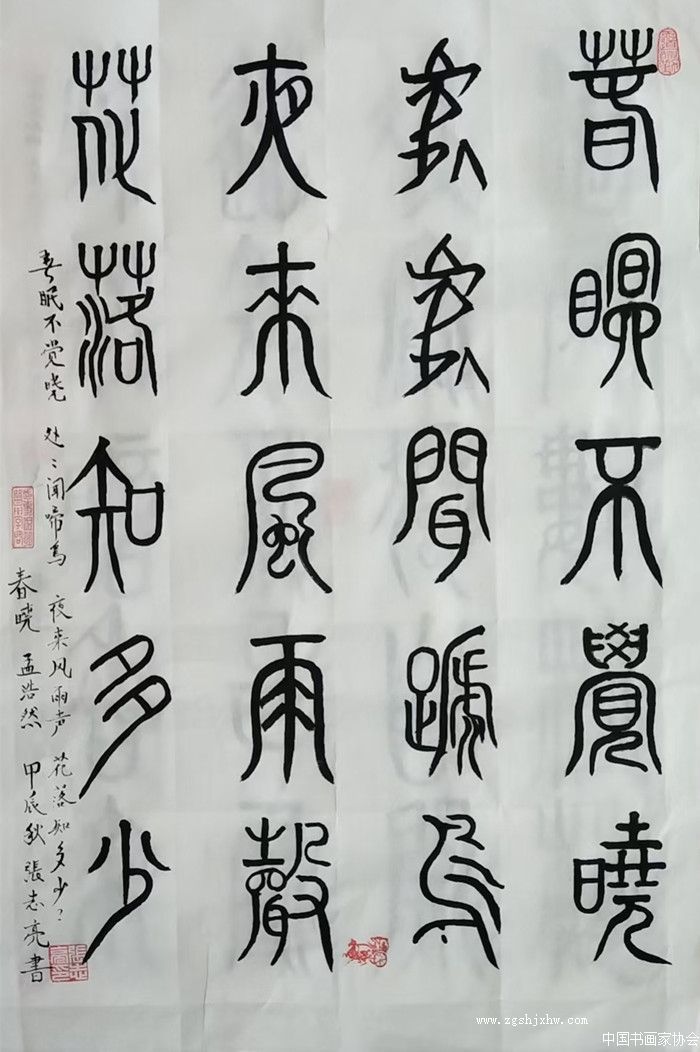 春眠不覺曉
處處聞嗁鳥
夜來風雨聲
花落知多少
春眠不觉晓 处〻闻啼鸟 夜来风雨声 花落知多少?
春晓 孟浩然 甲辰秋張志亮書
www.zgshjxhw.com
中国书画家协会